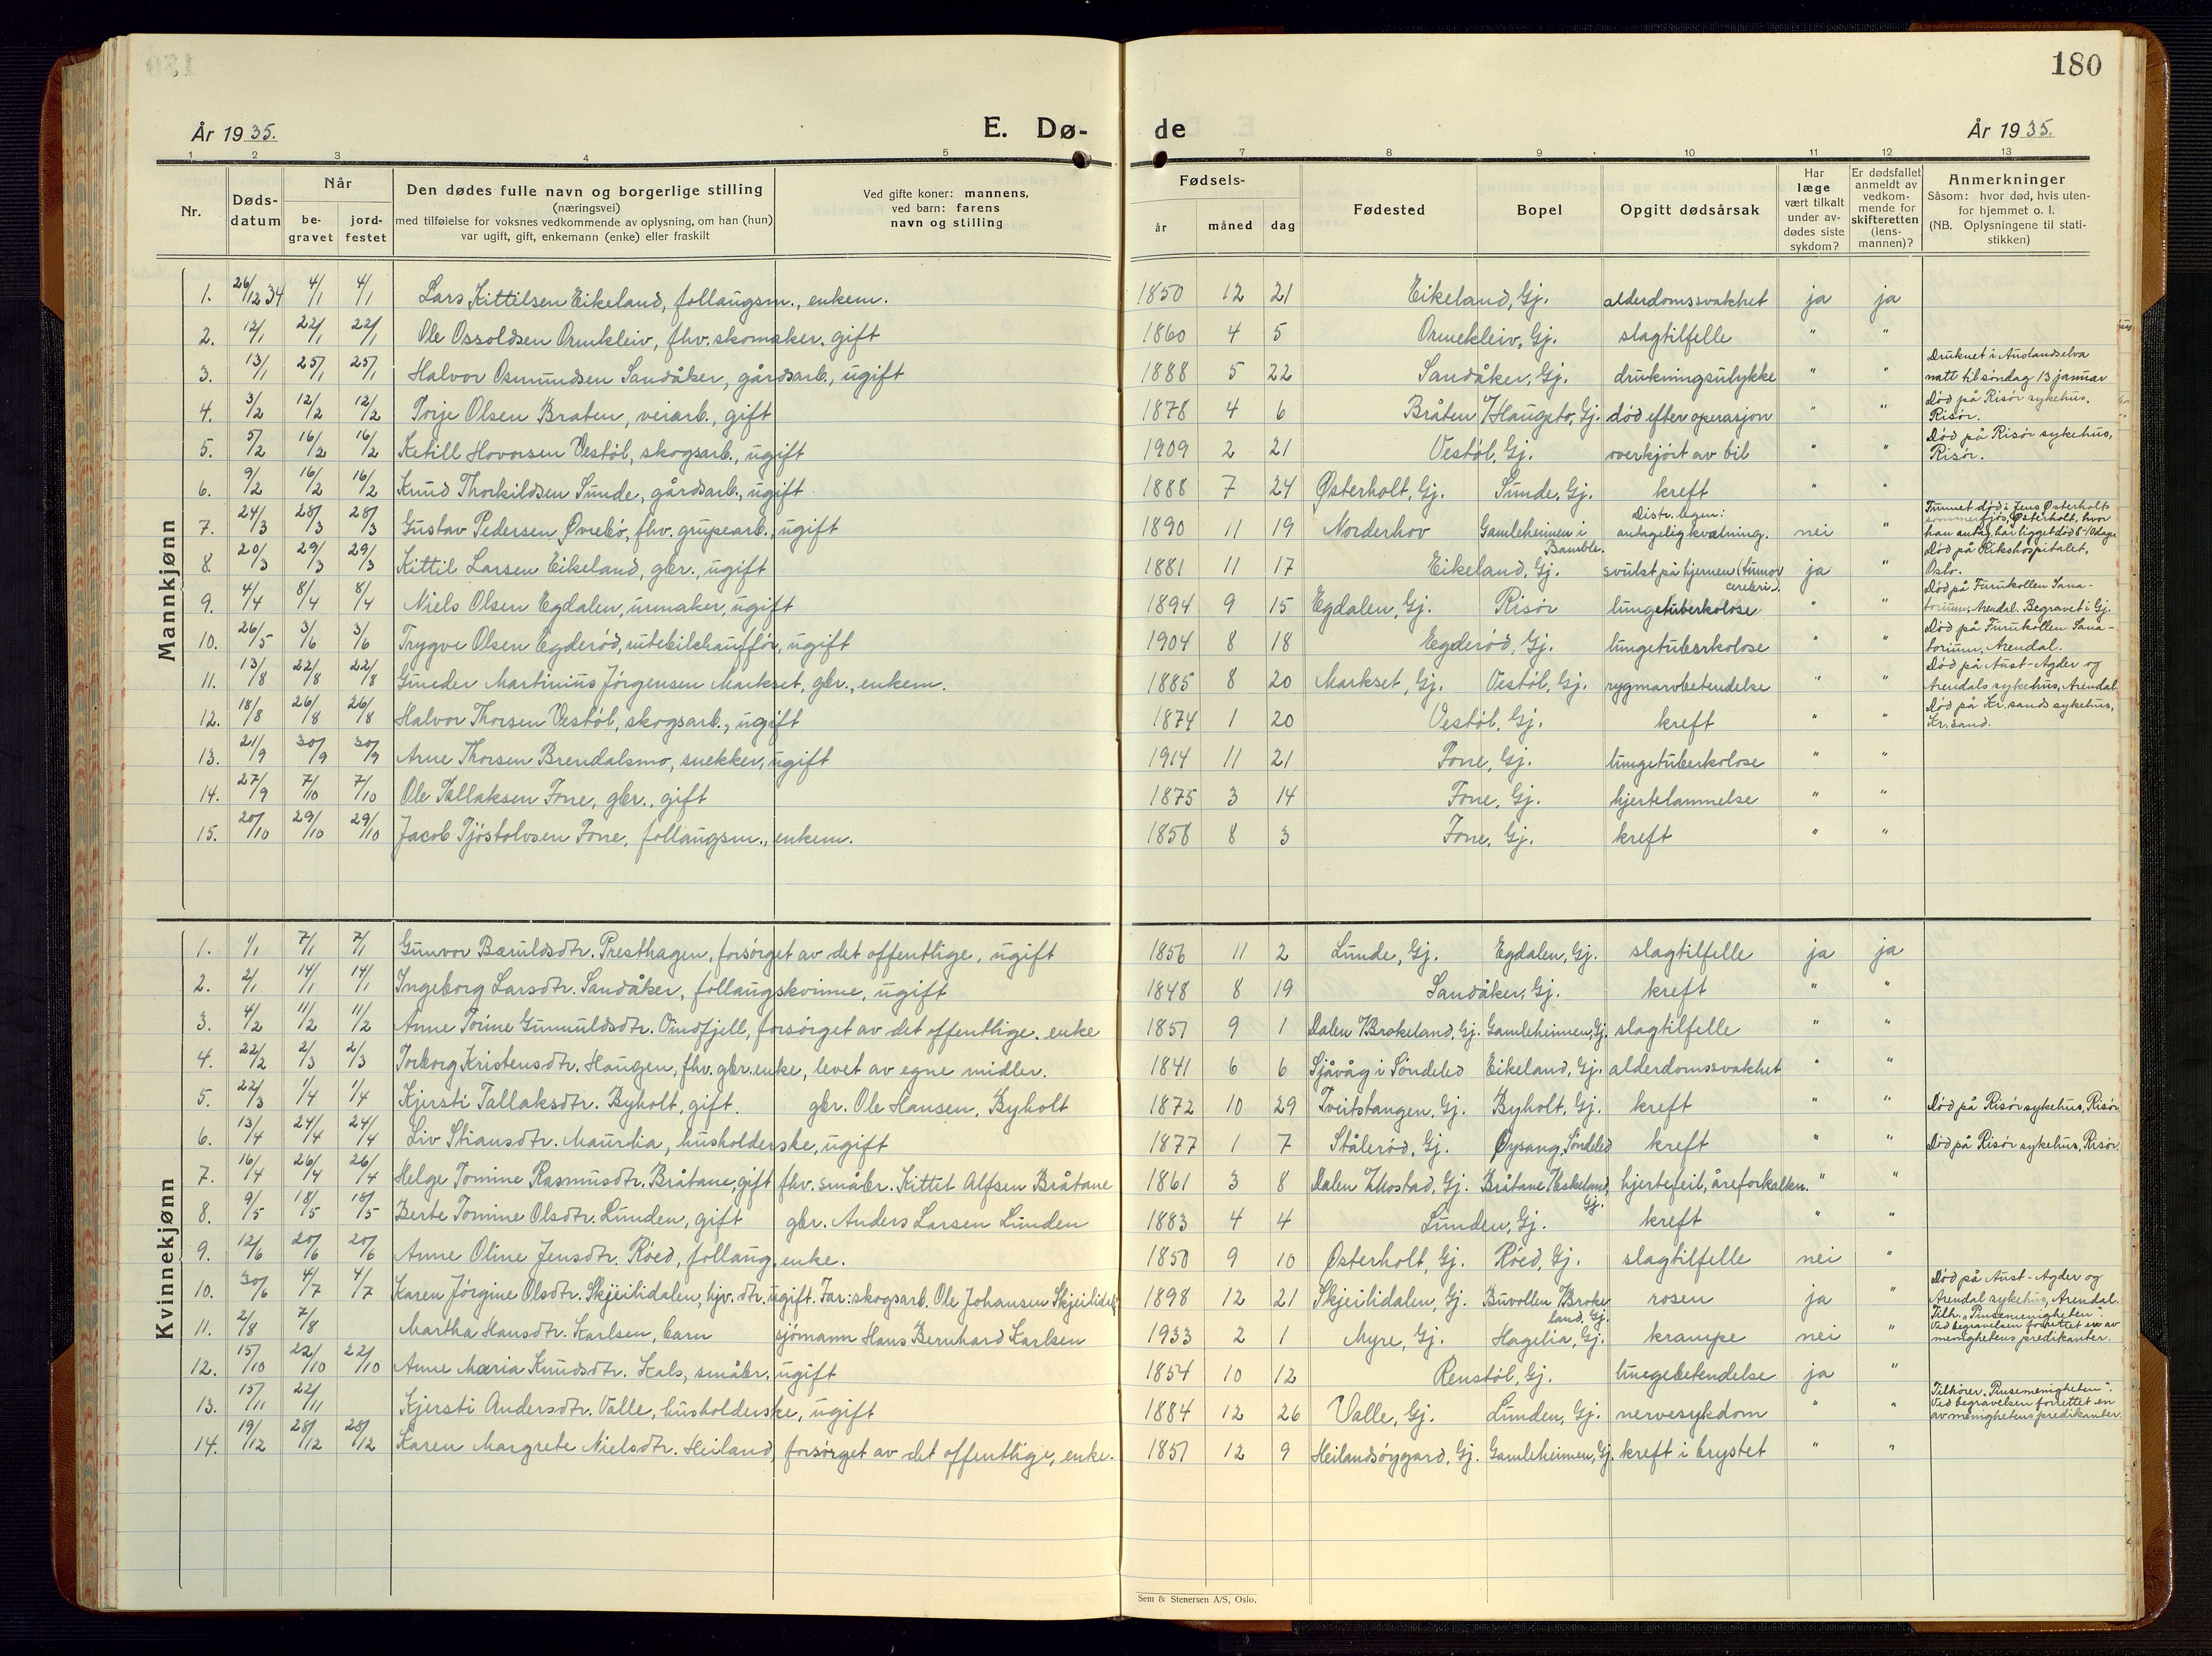 180
År 1935.
E. Dø-
de
År 1935.
1 2 3 4 5 7 8 9 10 11 12 13
Nr.
Døds-
datum
Når
be-
gravet
jord-
festet
Den dødes fulle navn og borgerlige stilling
(næringsvei)
med tilføielse for voksnes vedkommende av oplysning, om han (hun)
var ugift, gift, enkemann (enke) eller fraskilt
Ved gifte koner: mannens,
ved barn: farens
navn og stilling
Fødsels-
år måned dag
Fødested
Bopel
Opgitt dødsårsak
Har
læge
vært tilkalt
under av-
dødes siste
sykdom?
Er dødsfallet
anmeldt av
vedkom-
mende for
skifteretten
(lens-
mannen)?
Anmerkninger
Såsom: hvor død, hvis uten-
for hjemmet o. l.
(NB. Oplysningene til stati-
stikken)
Mannkjønn
1. 26/12 34 4/1 4/1 Lars Kittilsen Eikeland, follaugsm., enkem. 1850 12 21 Eikeland, Gj. alderdomssvakhet ja ja
2. 12/1 22/1 22/1 Ole Ossoldsen Ormkleiv, fhv. skomaker, gift 1860 4 5 Ormekleiv, Gj. slagtilfelle " "
3. 13/1 25/1 25/1 Halvor Osmundsen Sandåker, gårdsarb., ugift 1888 5 22 Sandåker, Gj. drukningsulykke " " Druknet i Audlandselva
natt til søndag 13 januar
4. 3/2 12/2 12/2 Torje Olsen Braten, veiarb., gift 1878 4 6 Bråten u/Haugeto, Gj. død efter operasjon " " Død på Risør sykehus,
Risør.
5. 5/2 16/2 16/2 Ketill Hovorsen Vestøl, skogsarb., ugift 1909 2 21 Vestøl, Gj. overkjørt av bil " " Død på Risør sykehus,
Risør.
6. 9/2 16/2 16/2 Knud Thorkildsen Sunde, gårdsarb., ugift 1888 7 24 Østerholt, Gj. Sunde, Gj. kreft " "
7. 24/3 28/3 28/3 Gustav Pedersen Øvrebø, fhv. grupearb., ugift 1890 11 19 Norderhov Gamleheimen i
Bamble. Distr. legen:
antagelig kvælning. nei " Funnet død i Jens Østerholts
sommerfjøs, Østerholt, hvor
han antag. har ligget død 8-10 dage
8. 20/3 29/3 29/3 Kittil Larsen Eikeland, gbr., ugift 1881 11 17 Eikeland, Gj. svulst på hjernen (tumor
cerebri). ja " Død på Rikshospitalet,
Oslo.
9. 4/4 8/4 8/4 Niels Olsen Egdalen, urmaker, ugift 1894 9 15 Egdalen, Gj. Risør lungetuberkolose " " Død på Furukollen Sana-
torium, Arendal. Begravet i Gj.
10. 26/5 3/6 3/6 Trygve Olsen Egderød, rutebilchauffør, ugift 1904 8 18 Egderød, Gj. lungetuberkolose " " Død på Furukollen Sana-
torium, Arendal.
11. 13/8 22/8 22/8 Gunder Martinius Jørgensen Markset, gbr., enkem. 1885 8 20 Markset, Gj. Vestøl, Gj. rygmarvbetendelse " " Død på Aust-Agder og
Arendals sykehus, Arendal
12. 18/8 26/8 26/8 Halvor Thorsen Vestøl, skogsarb., ugift 1874 1 20 Vestøl, Gj. kreft " " Død på Kr. sands sykehus,
Kr. sand.
13. 21/9 30/9 30/9 Arne Thorsen Brendalsmo, snekker, ugift 1914 11 21 Fone, Gj. lungetuberkolose " "
14. 27/9 7/10 7/10 Ole Tallaksen Fone, gbr., gift 1875 3 14 Fone, Gj. hjertelammelse " "
15. 20/10 29/10 29/10 Jacob Tjøstolvsen Fone, follaugsm., enkem. 1858 8 3 Fone, Gj. kreft " "
Kvinnekjønn
1. 1/1 7/1 7/1 Gunvor Bærulds dtr. Presthagen, forsørget av det offentlige, ugift 1856 11 2 Lunde, Gj. Egdalen, Gj. slagtilfelle ja ja
2. 2/1 14/1 14/1 Ingeborg Larsdtr. Sandåker, follaugskvinne, ugift 1848 8 19 Sandåker, Gj. kreft " "
3. 4/2 11/2 11/2 Anne Torine Gunnuldsdtr. Vindfjell, forsørget av det offentlige, enke 1851 9 1 Dalen u/Brokeland, Gj. Gamleheimen, Gj. slagtilfelle " "
4. 22/2 2/3 2/3 Torborg Kristensdtr. Haugen, fhv. gbr.enke, levet av egne midler. 1841 6 6 Sjåvåg i Søndeled Eikeland, Gj. alderdomssvakhet " "
5. 22/3 1/4 1/4 Kjersti Tallaksdtr. Byholt, gift. gbr. Ole Hansen, Byholt 1872 10 29 Tveitstangen, Gj. Byholt, Gj. kreft " " Død på Risør sykehus, Risør
6. 13/4 24/4 24/4 Liv Stiansdtr. Maurlia, husholderske, ugift 1877 1 7 Stålerød, Gj. Øysang, Søndeled kreft " " Død på Risør sykehus, Risør.
7. 16/4 26/4 26/4 Helge Tomine Rasmusdtr. Bråtane, gift fhv. småbr. Kittil Alfsen Bråtane 1861 3 8 Dalen u/Mostad, Gj. Bråtane u/Eskeland,
Gj. hjertefeil, åreforkalkn. " "
8. 9/5 18/5 18/5 Berte Tomine Olsdtr. Lunden, gift gbr. Anders Larsen Lunden 1883 4 4 Lunden, Gj. kreft " "
9. 12/6 20/6 20/6 Anne Oline Jensdtr. Røed, follaug, enke. 1850 9 10 Østerholt, Gj. Røed, Gj. slagtilfelle nei "
10. 30/6 4/7 4/7 Karen Jørgine Olsdtr. Skjeilidalen, hjv. dtr. ugift. Far: skogsarb. Ole Johansen 1898 12 21 Skjeilidalen, Gj. Buvollen u/Broke
land, Gj. rosen ja " Død på Aust-Agder og
Arendal sykehus, Arendal.
11. 2/8 7/8 Martha Hansdtr. Karlsen, barn sjømann Hans Bernhard Karlsen 1933 2 1 Myre, Gj. Hagelia, Gj. krampe nei " Tilh. "Pinsemenigheten".
Ved begravelsen forrettet en av
menighetens predikanter.
12. 15/10 22/10 22/10 Anne Maria Knudsdtr. Hals, småbr., ugift 1854 10 12 Renstøl, Gj. lungebetendelse ja "
13. 15/11 22/11 Kjersti Andersdtr. Valle, husholderske, ugift 1884 12 26 Valle, Gj. Lunden, Gj. nervesykdom " " Tilhører "Pinsemenigheten".
Ved begravelsen forrettet en
av menighetens predikanter.
14. 19/12 28/12 28/12 Karen Margrete Nielsdtr. Heiland, forsørget av det offentlige, enke. 1851 12 9 Heilandsøygard, Gj. Gamleheimen, Gj. kreft i brystet " "
Sem & Stenersen A/S, Oslo.